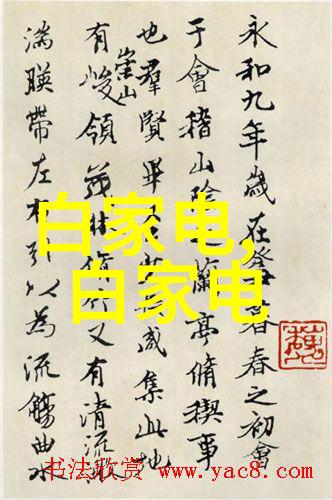 永和九年歲在癸丑暮春之初會
于會稽山陰之蘭亭脩稧事
也羣賢畢咸集此地
有崇山峻領茂林脩竹又有清流激
湍暎帶左右引以為流觴曲水
白家电,
白家电
书法欣赏 www.yac8.com